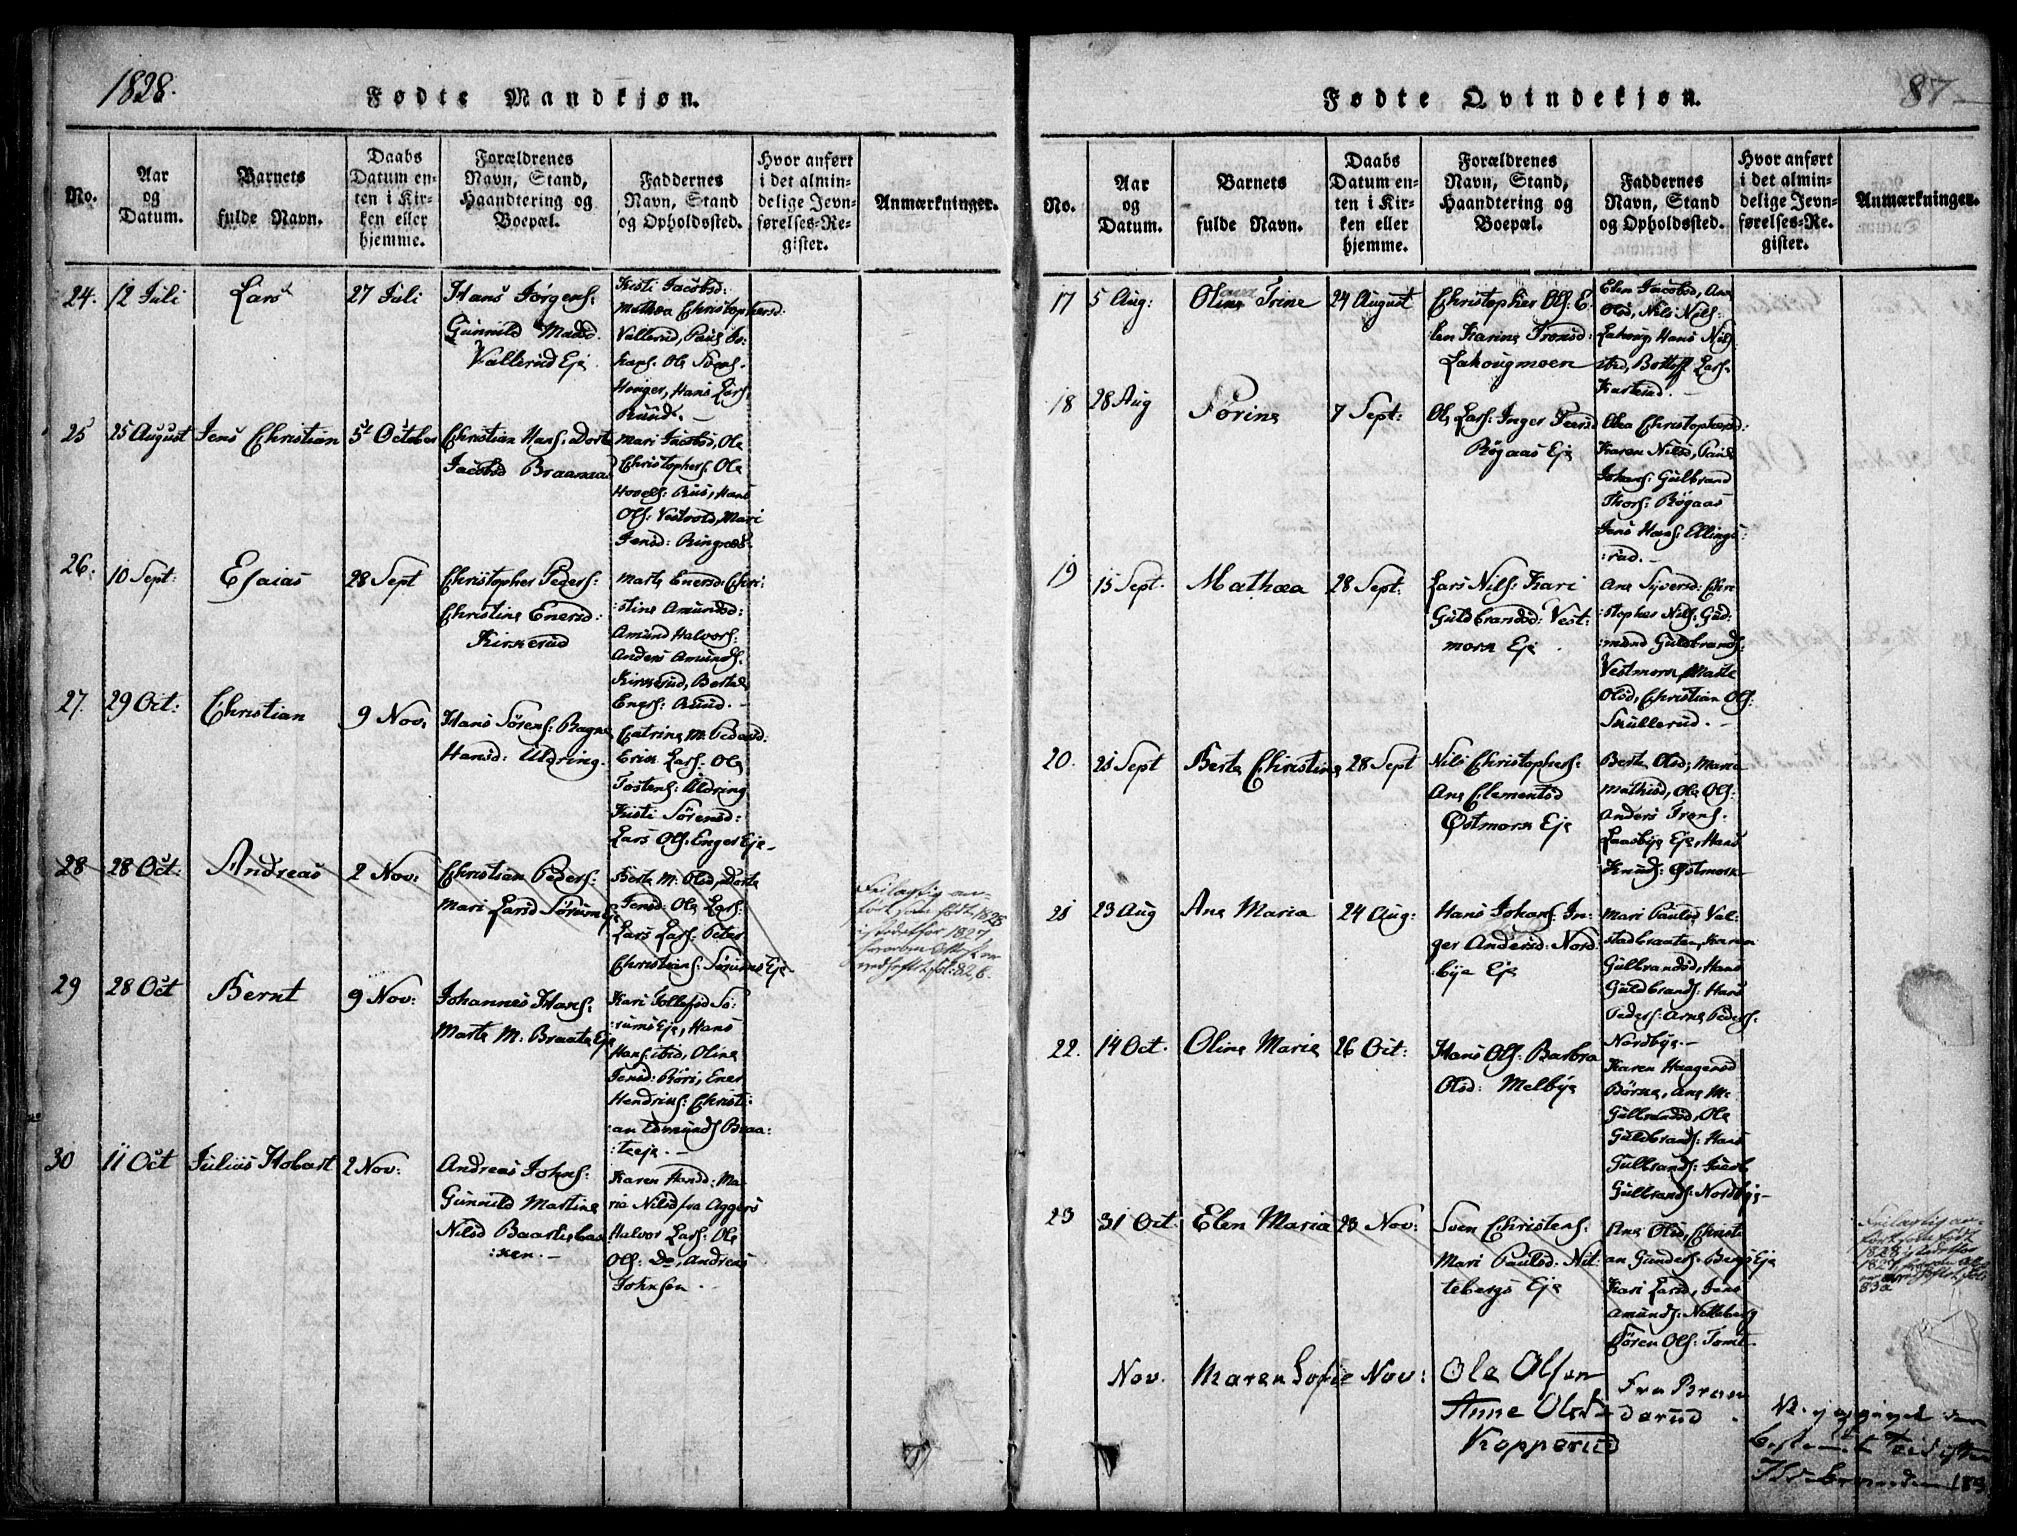 1828.
Fødte Mandkjøn.
No.
Aar og Datum.
Barnets fulde Navn.
Daabs Datum enten i Kirken eller hjemme.
Forældrenes Navn, Stand, Haandtering og Boepæl.
Faddernes Navn, Stand og Opholdssted.
Hvor anført i det almindelige Jevnførelses-Register.
Anmærkninger.
24. 12 Juli Lars 27 Juli
Hans Jørgens:
Gunnild Madsd.
Vallerud Eje
Kisti Jacobsd:
Mathea Christophersd:
Vallerud, Paul
Hans. Ole
Henger, Hans Lars:
Ruud.
25 25 August Jens Christian 5t October
Christian Hans: Dorte
Jacobsd Braamaa
Mari Jacobsd, Ole
Christophers: Ole
Hovels: Ruus, Hans
Ols: Vestvold, Mari
Jensd: Ringnæs.
26. 10 Sept: Esaias 28 Sept
Christopher Peders:
Christine Enersd:
Kirkerud
Marte Enersd: Chri:
:stine Amundsd:
Amund Halvors:
Anders Amunds.
Kirkerud, Bertel
Engs: Ruud.
27. 29 Oct: Christian 9 Nov:
Hans Sørens: Ragne
Hansd: Uldring.
Catrine M: Pedersd:
Erik Lars: Ole
Tostens: Uldring
Kisti Sørensd:
Lars Ols: Enger Eje
28 28 Oct: Andreas 2 Nov:
Christian Peders:
Mari Larsd Sørum Eje
Berte M: Olsd, Dorte
Jensd: Ole Lars:
Lars Lars: Peter
Christians: Sørums Eje
Feilagtig an-
ført som født 1828
istedetfor 1827
29 28 Oct Bernt 9 Nov:
Johannes Hans:
Marte M: Braate Eje
Kari Tollefsd Sø-
:rums Eje, Hans
Hans: ibid, Oline
Jensd: Røri, Ener
Hendriks: Christi:
:an Edmunds Braa:
:teeje.
30 11 Oct Julius Hobart 2 Nov:
Andreas Johns:
Gunnild Martine
Nilsd Baastsbac
:ken.
Karen Hansd: Ma:
ria Nilsd fra Aggers
Halvor Lars: Ole
Ols: Do, Andreas
Johnsen.
Fødte Qvindekjøn.
87
No.
Aar og Datum.
Barnets fulde Navn.
Daabs Datum enten i Kirken eller hjemme.
Forældrenes Navn, Stand, Haandtering og Boepæl.
Faddernes Navn, Stand og Opholdssted.
Hvor anført i det almindelige Jevnførelses-Register.
Anmærkninger.
17 5 Aug: Oline Trine 24 August
Christopher Ols: E.
len Karine Tronsd:
Lakougmoen
Elen Jacobsd, Ane
Olsd, Nils Nils:
Lakoug Hans Nils:
ibid, Lars:
Karterud.
18 28 Aug Sørine 7 Sept:
Ole Lars: Inger Peersd
Røgaas Eje
Olea Christophersd:
Karen Nilsd, Paul
Johans: Gulbrand
Thors: Røgaas
Jens Hans: Ellings
:rud.
19 15 Sept. Mathæa 28 Sept:
Lars Nils: Kari
Guldbrandsd: Vest-
mork Eje
Ane Syversd: Chri
:stopher Nils: Gud-
:mund Guldbrands:
Vestmork, Marte
Olsd, Christian Ols:
Skullerud.
20. 21 Sept Berte Christine 28 Sept
Nils Christophers:
Ane Clementsd
Østmork Eje
Berte Olsd, Marie
Mathisd, Ole Ols:
Anders Trons:
Laasbye Eje, Hans
Knuds: Østmork
21 23 Aug Ane Maria 24 Aug:
Hans Johans: In-
ger Andersd: Nord
:bye Eje
Mari Paulsd Val-
:stadbraaten, Karen
Gulbrandsd, Hans
Guldbrands: Hans
Peders: Arne Peders:
Nordbye.
22. 14 Oct. Oline Marie 26 Oct:
Hans Ols: Barbra
Olsd: Melbye
Karen Haagensd
Børne, Ane M:
Gulbrandsd, Ole
Guldbrands: Hans
Gulbrands: Jacob
Gulbrands: Nordbye
23 31 Oct. Elen Maria 23 Nov:
Sven Christens:
Mari Paulsd: Nit-
tebergs Eje
Ane Olsd, Christi
an Gunders: Bergs Eje
Kari Larsd, Jens
Amunds: Nitteberg
Søren Ols: Tomt
Feilagtig an-
ført som født
1828 istedetfor
1827,
83a
Nov. Maren Sofie Nov:
Ole Olsen
Anne Olsd
Kopperud
Fra Bran
derud.